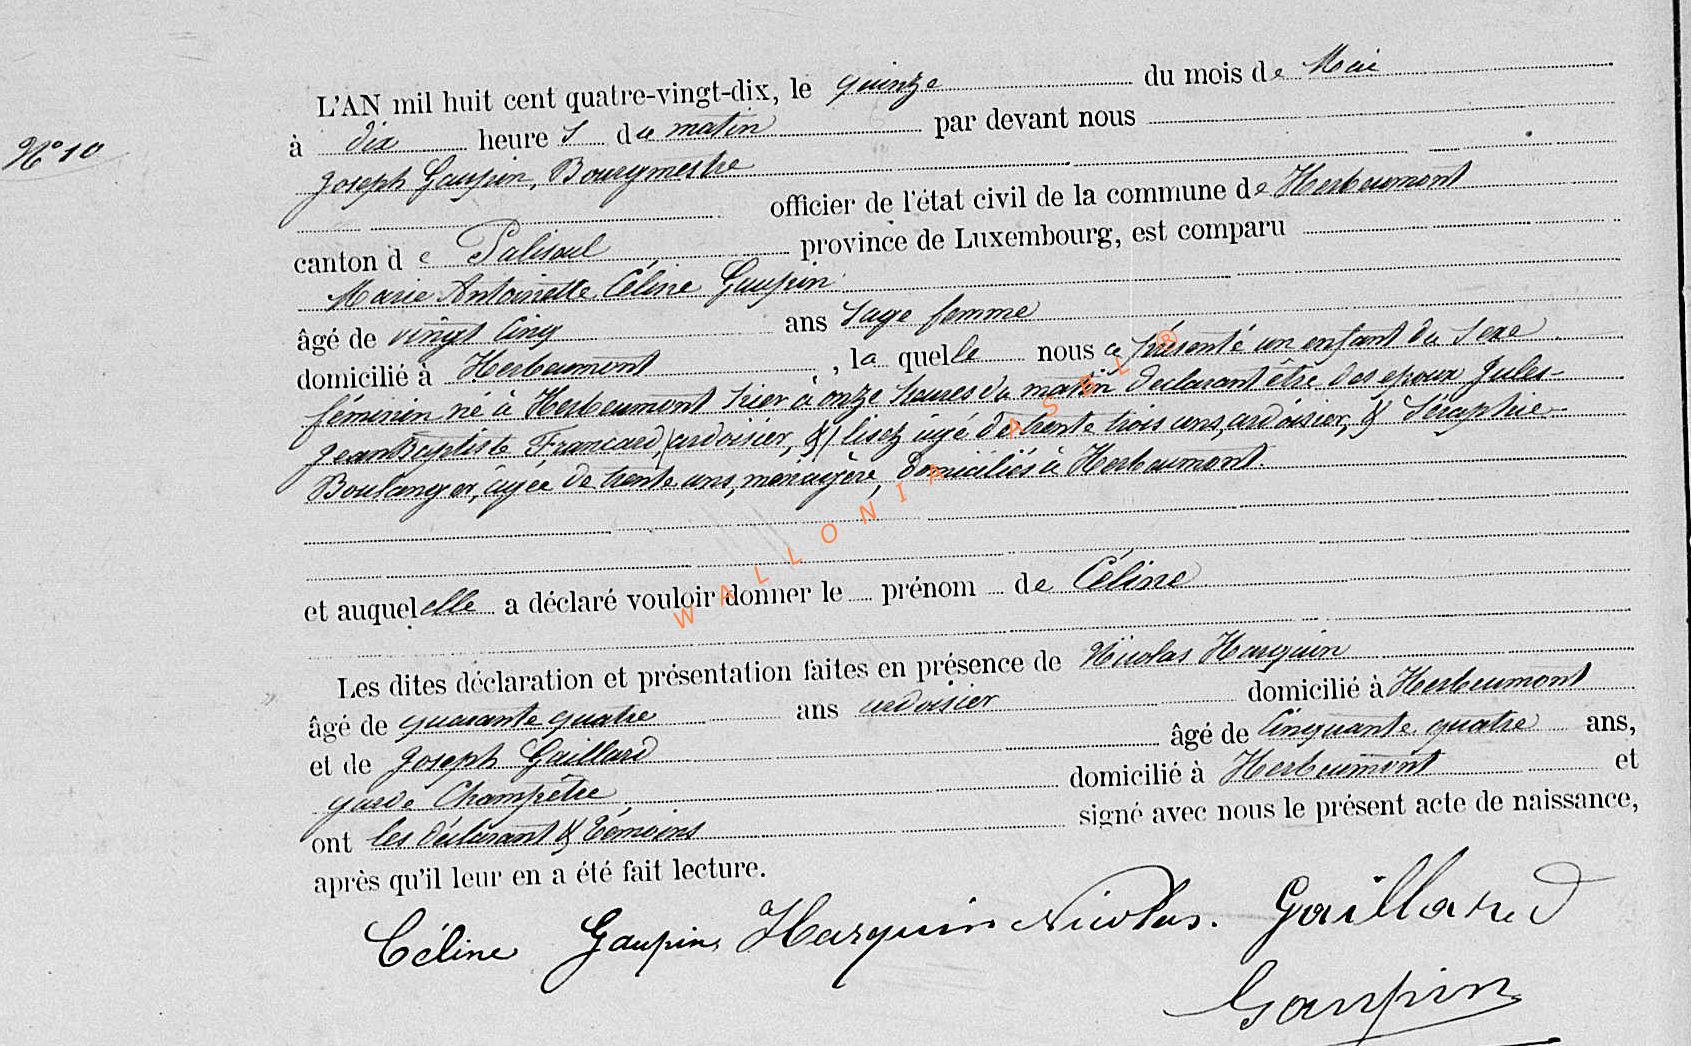 N° 10
L'AN mil huit cent quatre-vingt-dix, le quinze du mois de Mai
à dix heures du matin par devant nous
Joseph Gaupin, Bourgmestre
officier de l'état civil de la commune de Herbeumont
canton de Paliseul province de Luxembourg, est comparu
Marie Antoinette Céline Gaupin
âgé de vingt cinq ans Sage femme
domicilié à Herbeumont, laquelle nous a présenté un enfant du sexe
féminin né à Herbeumont hier à onze heures du matin déclarant être des époux Jules-
Jean Baptiste Francard, (ardoisier, &) lisez âgé de trente trois ans, ardoisier, & Séraphie
Boulanger, âgée de trente ans, ménagère, domiciliés à Herbeumont.
et auquelelle a déclaré vouloir donner le prénom de Céline
Les dites déclaration et présentation faites en présence de Nicolas Harquin
âgé de quarante quatre ans ardoisier domicilié à Herbeumont
et de Joseph Gaillard âgé de cinquante quatre ans,
garde Champêtre, domicilié à Herbeumont et
ont les déclarant & témoins signé avec nous le présent acte de naissance,
après qu'il leur en a été fait lecture.
Céline Gaupin Harquin Nicolas. Gaillard
Gaupin
WALLONIA ASBL ®